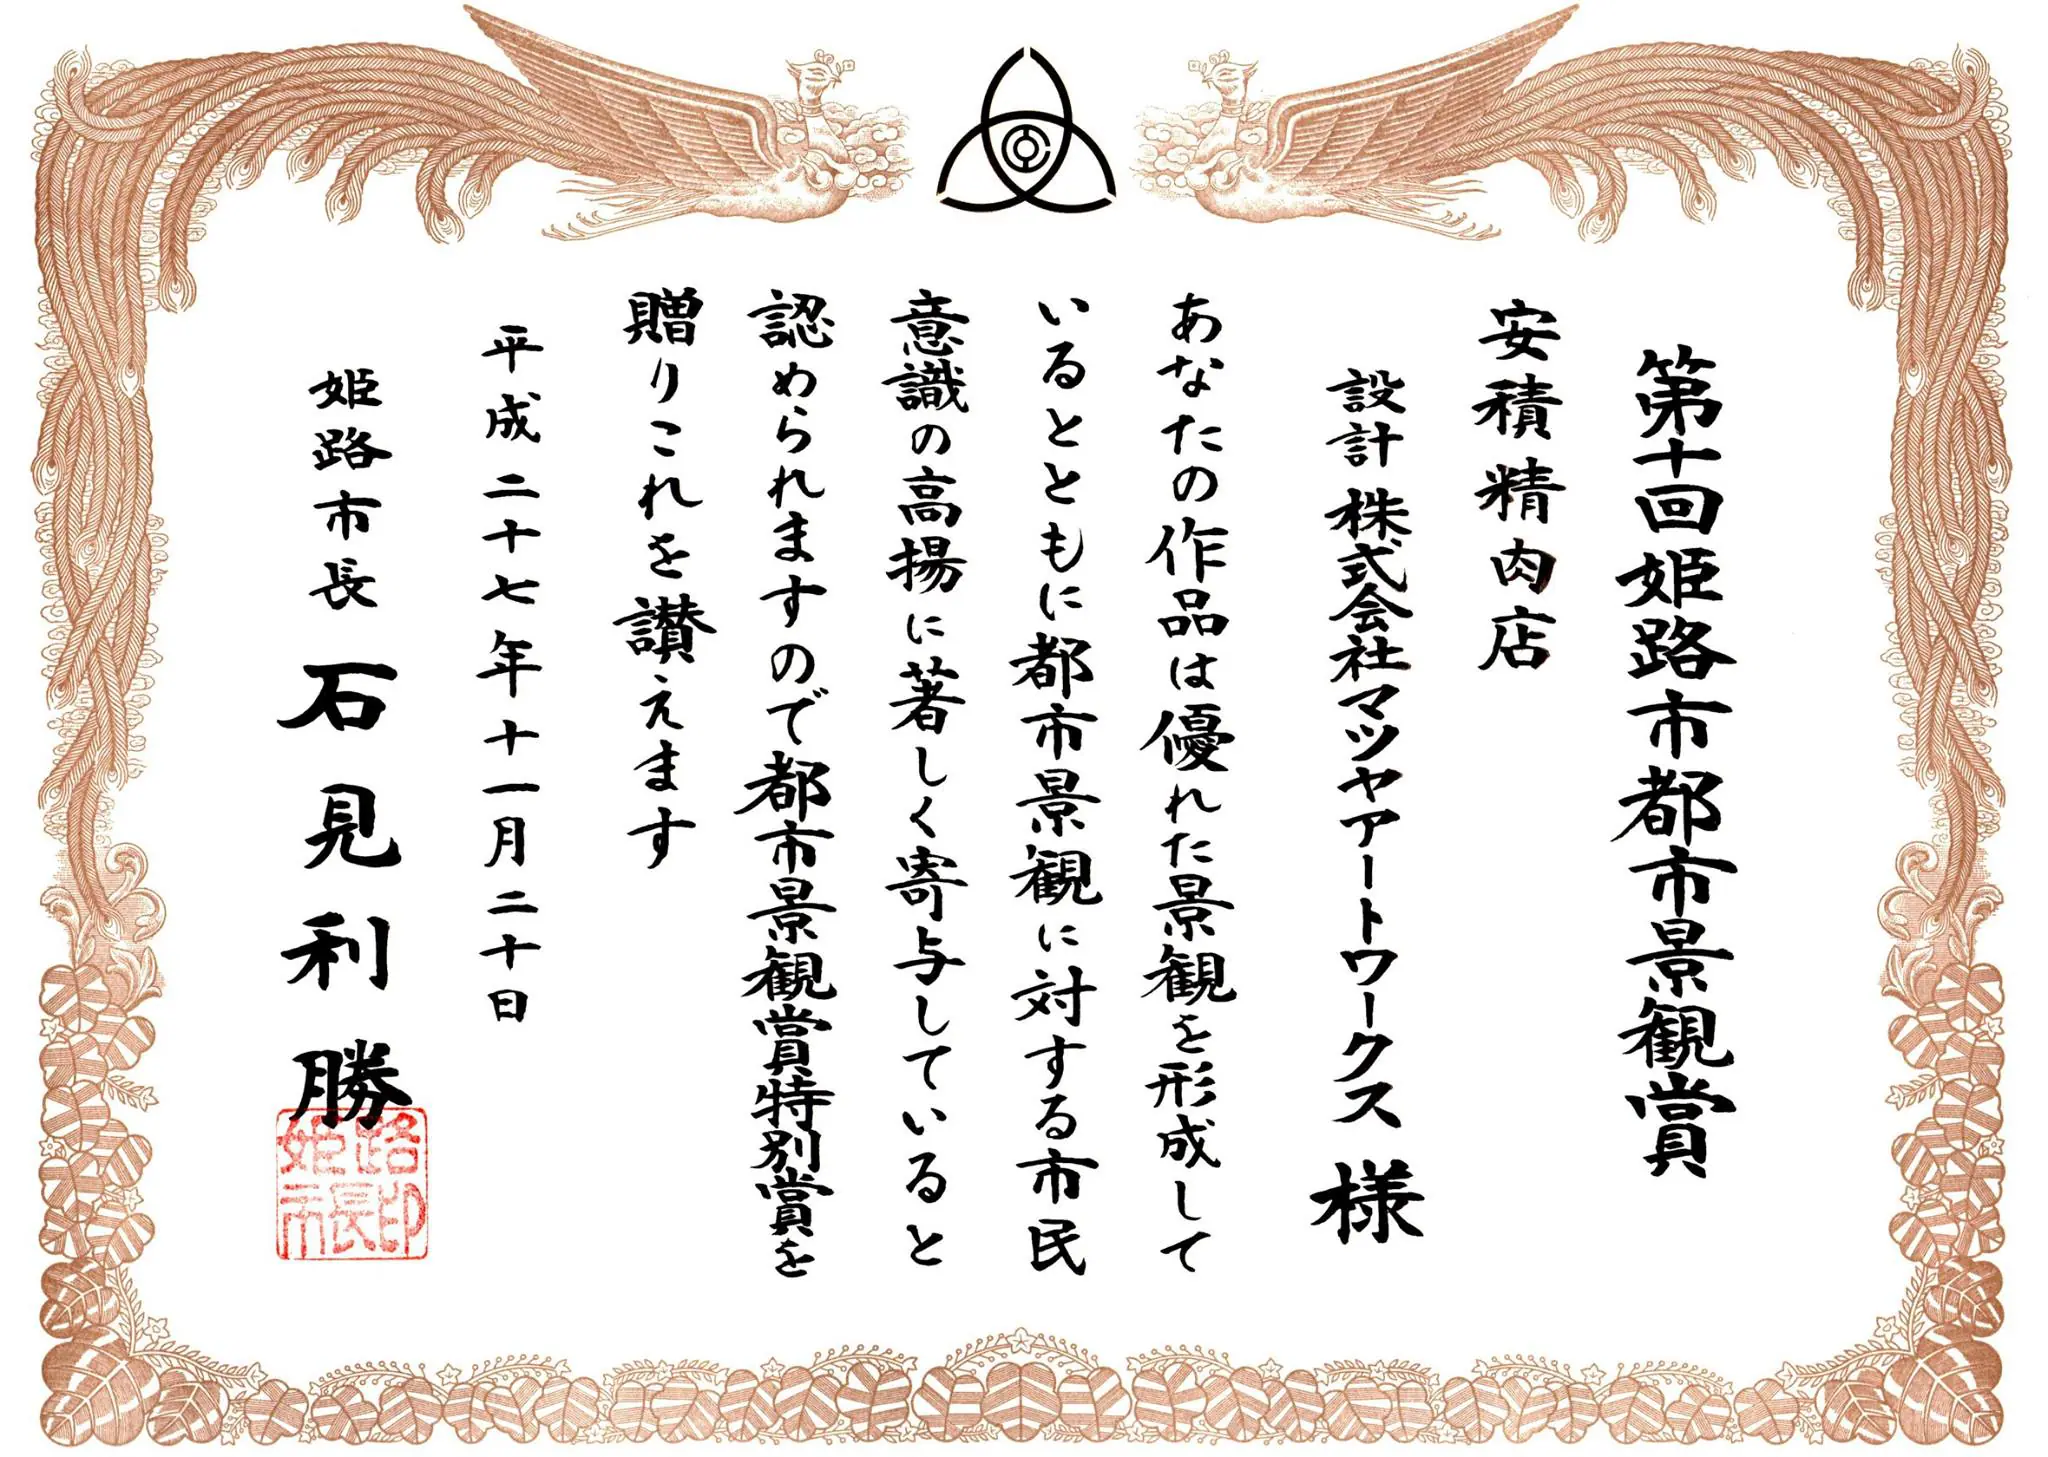 第十回姫路市都市景観賞
安積精肉店
設計 株式会社マツヤアートワークス 様
あなたの作品は優れた景観を形成して
いるとともに都市景観に対する市民
意識の高揚に著しく寄与していると
認められますので都市景観賞特別賞を
贈りこれを讃えます
平成二十七年十一月二十日
姫路市長 石見利勝
姫路
市長印